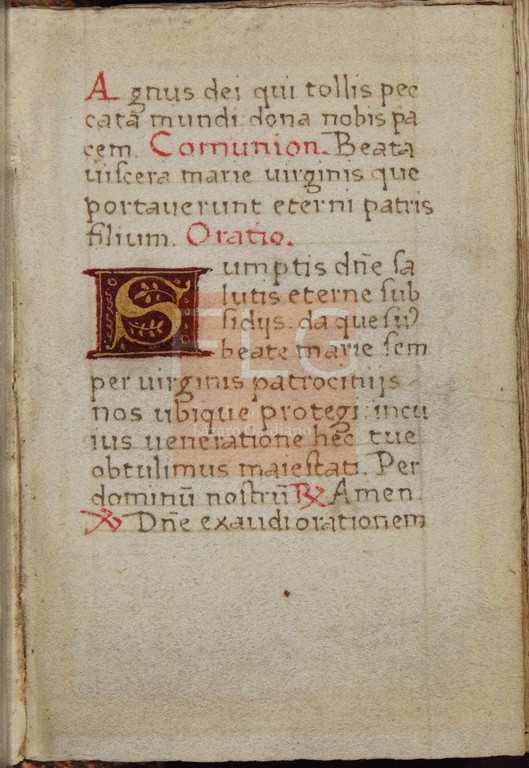 Agnus dei qui tollis pec
cata mundi dona nobis pa
cem. Comunion. Beata
uiscera marie uirginis que
portauerunt eterni patris
filium. Oratio.
Sumptis dñe sa
lutis eterne sub
sidijs: da quesuꝰ
beate marie sem
per uirginis patrocinijs
nos ubique protegi: incu
ius ueneratione hec tue
obtulimus maiestati. Per
dominū nostrū ℞ Amen
℣ Dñe exaudi orationem
FLG
Lázaro Galdiano